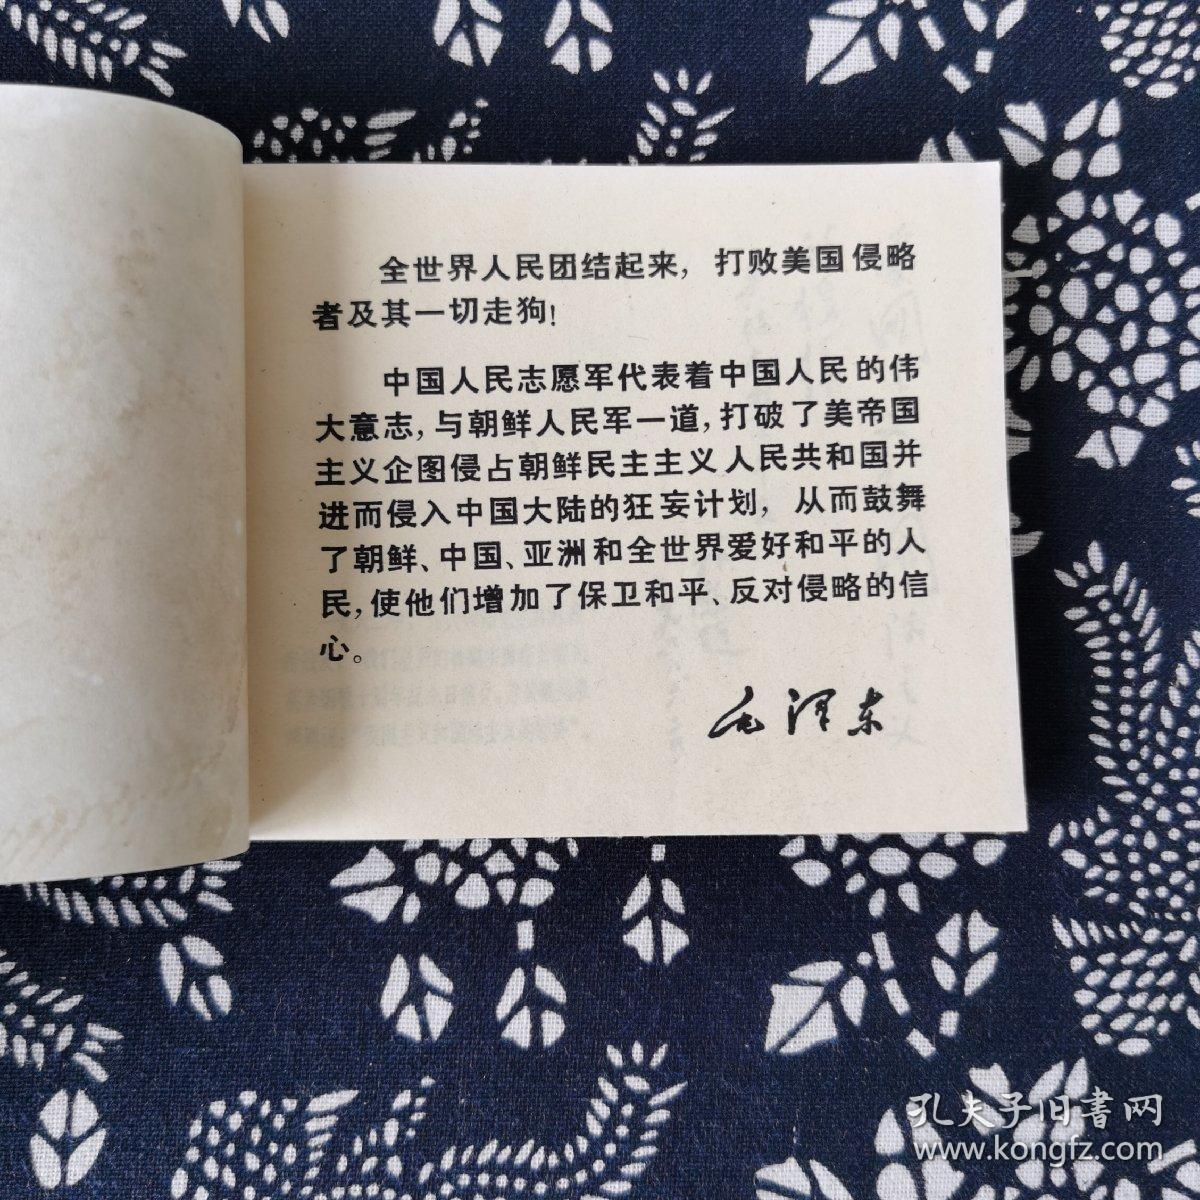 全世界人民团结起来，打败美国侵略
者及其一切走狗！
中国人民志愿军代表着中国人民的伟
大意志，与朝鲜人民军一道，打破了美帝国
主义企图侵占朝鲜民主主义人民共和国并
进而侵入中国大陆的狂妄计划，从而鼓舞
了朝鲜、中国、亚洲和全世界爱好和平的人
民，使他们增加了保卫和平、反对侵略的信
心。
毛泽东
孔夫子旧書网
www.kongfz.com